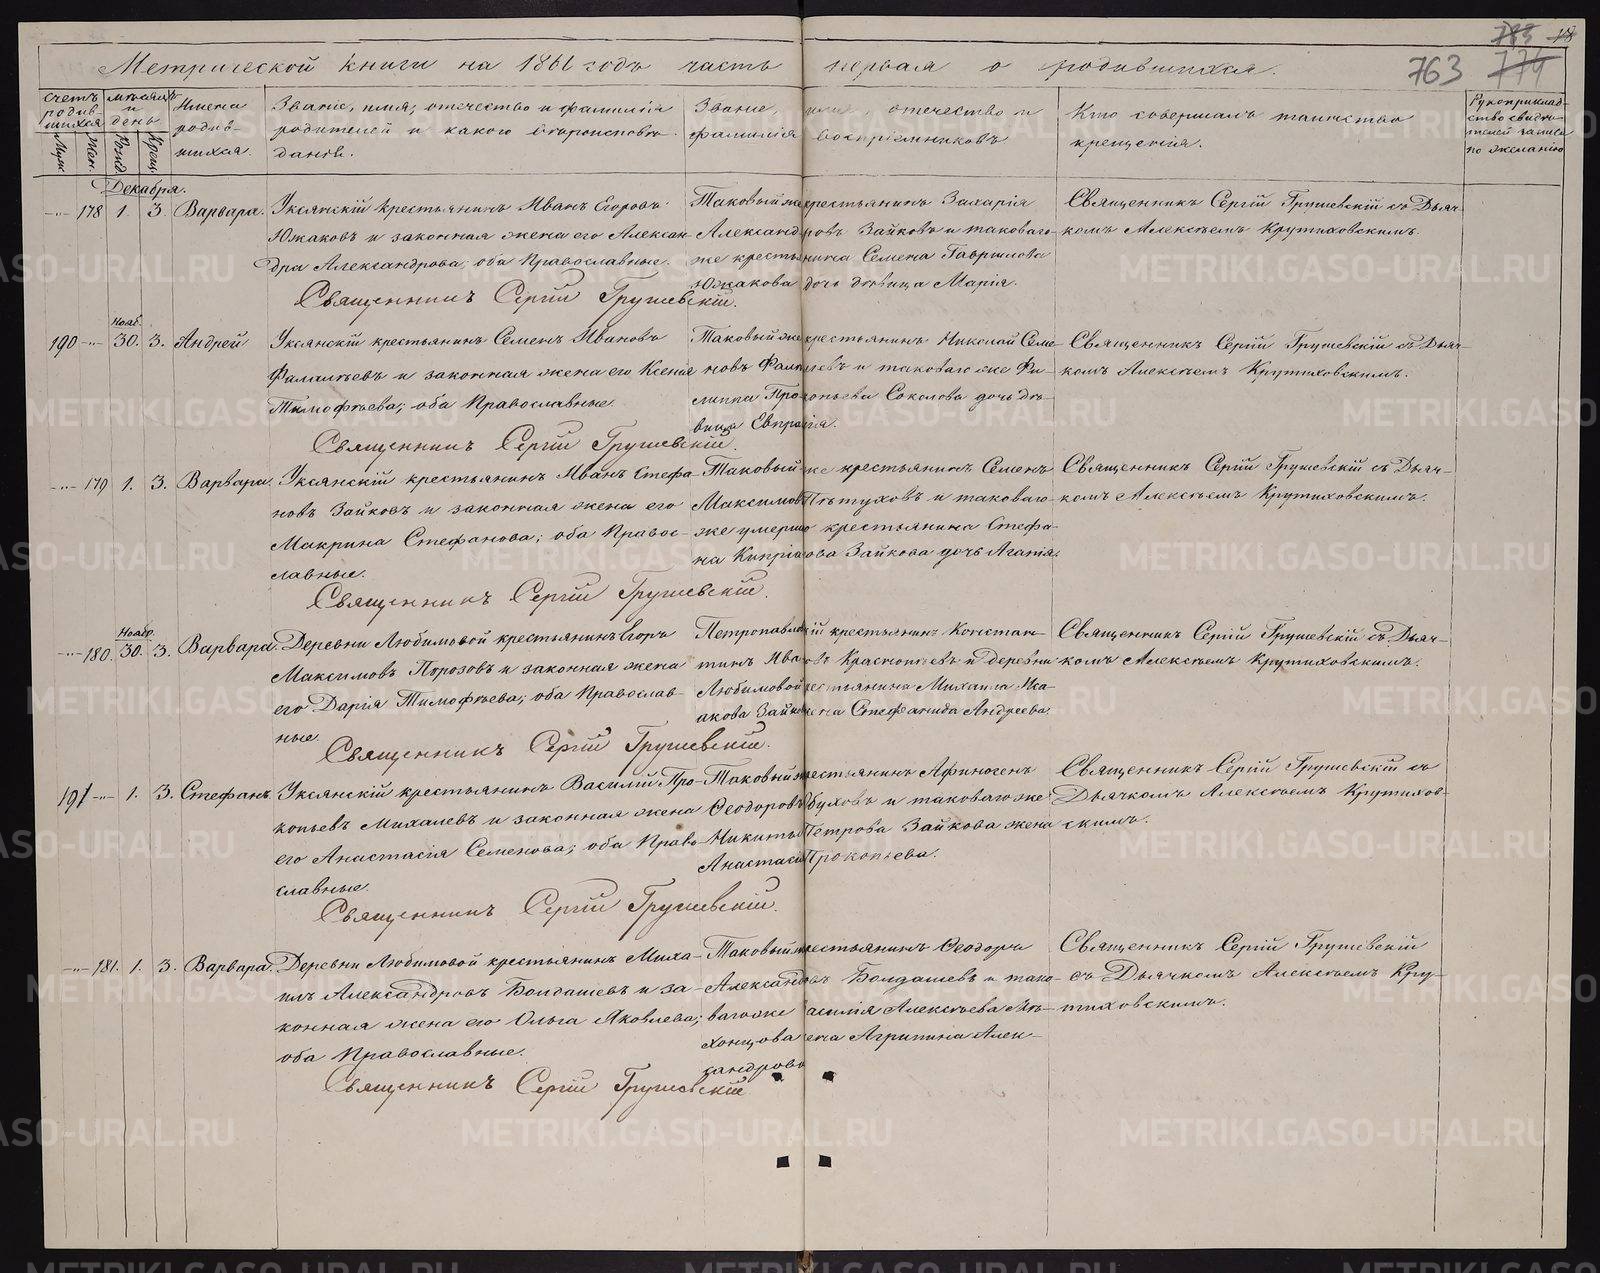 783 18
763 774
Метрической книги на 1861 годъ часть первая о родившихся.
Счетъ родив-шихся
Муж.
Жен.
мѣсяцъ и день
Рожд.
Крещ.
Имена родив-шихся.
Званіе, имя, отечество и фамилія
родителей и какого вѣроисповѣ-
данія.
Званіе, имя, отечество и
фамилія воспріемниковъ
Кто совершалъ таинство
крещенія.
Рукоприклад-
ство свидѣ-
телей записи
по желанію
Декабря.
-"- 178 1. 3. Варвара.
Уксянскій крестьянинъ Иванъ Егоровъ
Южаковъ и законная жена его Алексан-
дра Александрова; оба Православные.
Таковый же крестьянинъ Захарія
Александровъ Зайковъ и таковаго-
же крестьянина Семена Гаврилова
Южакова дочь дѣвица Марія.
Священникъ Сергій Грушевскій съ Дьяч-
комъ Алексѣемъ Крутиховскимъ.
Священникъ Сергій Грушевскій.
Нояб.
190 -"- 30. 3. Андрей
Уксянскій крестьянинъ Семенъ Ивановъ
Фалалѣевъ и законная жена его Ксенія
Тимофѣева; оба Православные.
Таковый же крестьянинъ Николай Семе-
новъ Фалалѣевъ и таковаго же Фи-
липпа Прокопьева Соколова дочь дѣ-
вица Евпраксія.
Священникъ Сергій Грушевскій съ Дьяч-
комъ Алексѣемъ Крутиховскимъ.
Священникъ Сергій Грушевскій.
-"- 179 1. 3. Варвара.
Уксянскій крестьянинъ Иванъ Стефа-
новъ Зайковъ и законная жена его
Макрина Стефанова; оба Правос-
лавные.
Таковый же крестьянинъ Семенъ
Максимовъ Пѣтуховъ и таковаго
же умершаго крестьянина Стефа-
на Кипріанова Зайкова дочь Агапія.
Священникъ Сергій Грушевскій съ Дьяч-
комъ Алексѣемъ Крутиховскимъ.
Священникъ Сергій Грушевскій.
Ноябр.
-"- 180. 30. 3. Варвара.
Деревни Любимовой крестьянинъ Егоръ
Максимовъ Порозовъ и законная жена
его Дарія Тимофѣева; оба Православ-
ные.
Петропавловскій крестьянинъ Констан-
тинъ Ивановъ Краснопѣевъ и деревни
Любимовой крестьянина Михаила Иса-
акова Зайкова жена Стефанида Андреева.
Священникъ Сергій Грушевскій съ Дьяч-
комъ Алексѣемъ Крутиховскимъ.
Священникъ Сергій Грушевскій.
191 -"- 1. 3. Стефанъ.
Уксянскій крестьянинъ Василій Про-
копьевъ Михалевъ и законная жена
его Анастасія Семенова; оба Право-
славные.
Таковый же крестьянинъ Афиногенъ
Ѳеодоровъ Обуховъ и таковаго же
Никиты Петрова Зайкова жена
Анастасія Прокопьева.
Священникъ Сергій Грушевскій съ
Дьячкомъ Алексѣемъ Крутихов-
скимъ.
Священникъ Сергій Грушевскій.
-"- 181. 1. 3. Варвара.
Деревни Любимовой крестьянинъ Миха-
илъ Александровъ Болдашевъ и за-
конная жена его Ольга Яковлева;
оба Православные.
Таковый же крестьянинъ Ѳеодоръ
Александровъ Болдашевъ и тако-
ваго же Василія Алексѣева Мѣ-
хонцова жена Агрипина Алек-
сандрова
Священникъ Сергій Грушевскій
съ Дьячкомъ Алексѣемъ Кру-
тиховскимъ.
Священникъ Сергій Грушевскій
METRIKI.GASO-URAL.RU